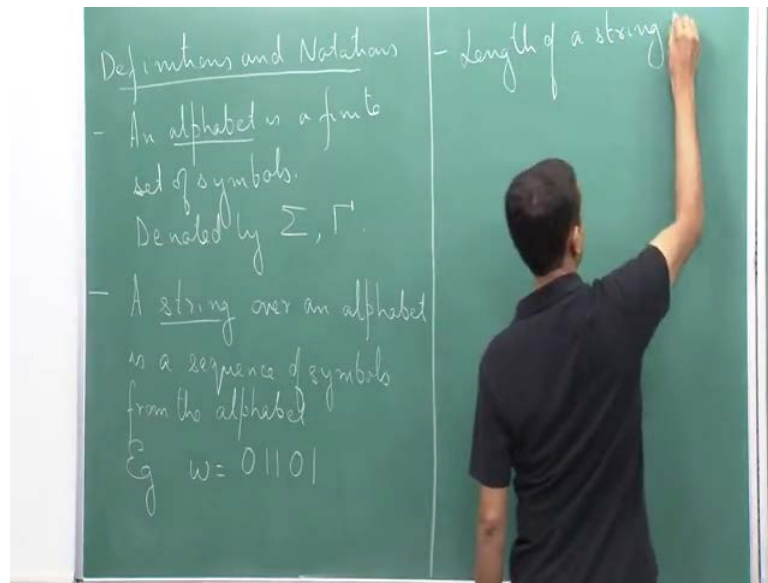 Definitions and Notations
- An alphabet is a finite
set of symbols.
Denoted by Σ, Γ.
- A string over an alphabet
is a sequence of symbols
from the alphabet
Eg w = 01101
- Length of a string